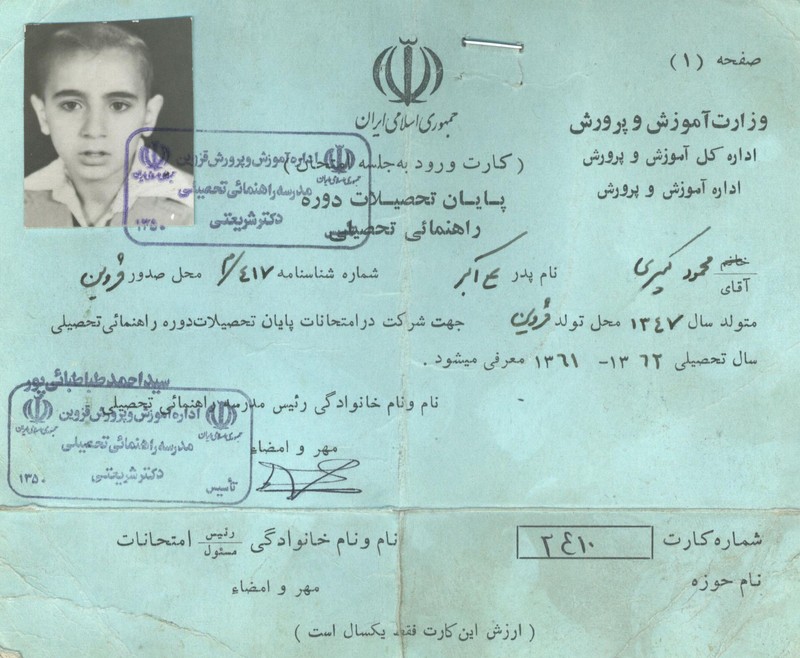 صفحه (۱)
جمهوری اسلامی ایران
وزارت آموزش و پرورش
اداره کل آموزش و پرورش
اداره آموزش و پرورش
(کارت ورود به جلسه امتحان)
پایان تحصیلات دوره
راهنمائی تحصیلی
اداره آموزش و پرورش قزوین
جمهوری اسلامی ایران
مدرسه راهنمائی تحصیلی
دکتر شریعتی
تأسیس ۱۳۵۰
خانم
آقای محمود نام پدر اکبر شماره شناسنامه ۴۱۷ محل صدور قزوین
متولد سال ۱۳۴۷ محل تولد قزوین جهت شرکت در امتحانات پایان تحصیلات دوره راهنمائی تحصیلی
سال تحصیلی ۱۳۶۲ - ۱۳۶۱ معرفی میشود .
سید احمد طباطبائی پور
نام و نام خانوادگی رئیس مدرسه راهنمائی تحصیلی
مهر و امضاء
اداره آموزش و پرورش قزوین
جمهوری اسلامی ایران
مدرسه راهنمائی تحصیلی
دکتر شریعتی
تأسیس ۱۳۵۰
شماره کارت
نام حوزه
نام و نام خانوادگی رئیس مسئول امتحانات
مهر و امضاء
(ارزش این کارت فقط یکسال است)